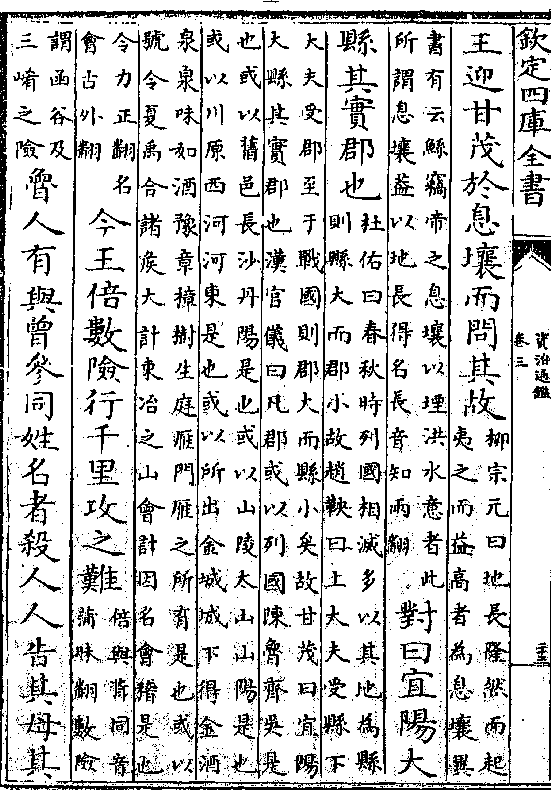 欽定四庫全書
資治通鑑
卷三
王迎甘茂於息壤而問其故
柳宗元曰地長隆然而起
夷之而益高者為息壤異
書有云鯀竊帝之息壤以堙洪水意者此
所謂息壤蓋以地長得名長音知兩翻
對曰宜陽大
縣其實郡也
杜佑曰春秋時列國相滅多以其地為縣
則縣大而郡小故趙鞅曰上大夫受縣下
大夫受郡至于戰國則郡大而縣小矣故甘茂曰宜陽
大縣其實郡也漢官儀曰凡郡或以列國陳魯齊吳是
也或以舊邑長沙丹陽是也或以山陵太山山陽是也
或以川原西河河東是也或以所出金城城下得金酒
泉泉味如酒豫章樟樹生庭雁門雁之所育是也或以
號令夏禹合諸侯大計東冶之山會計因名會稽是也
令力正翻名
會古外翻
今王倍數險行千里攻之難
倍與背同音
蒲昧翻數險
謂函谷及
三崤之險
魯人有與曾參同姓名者殺人人告其母其